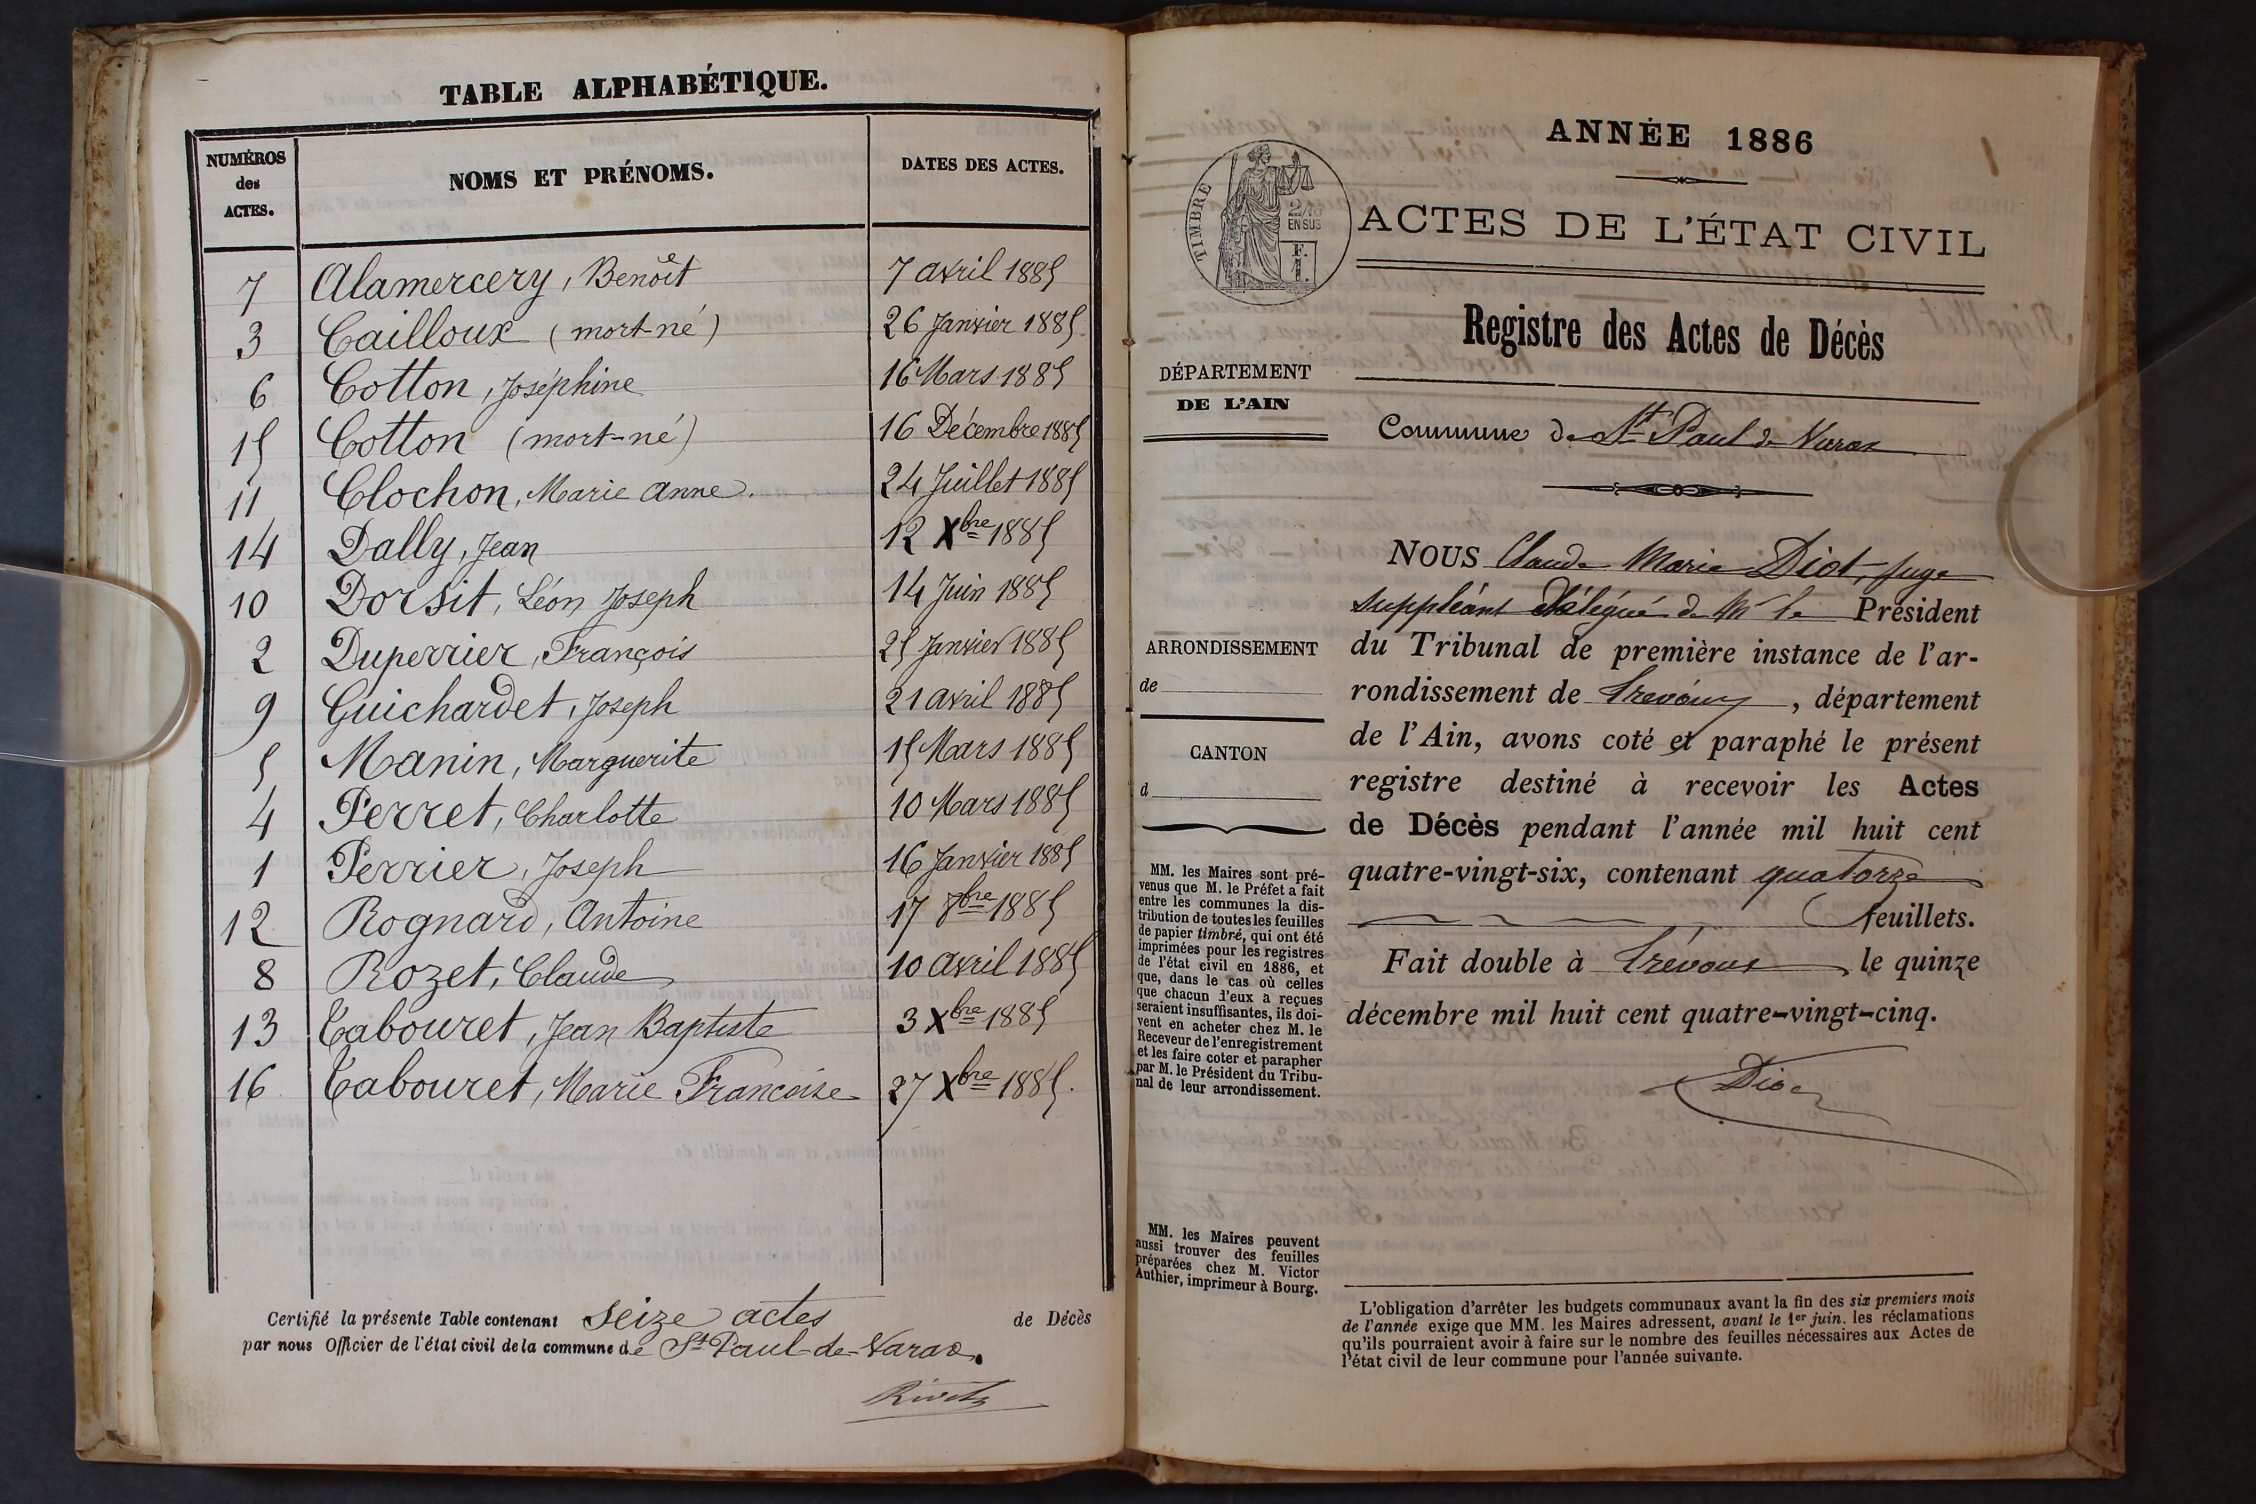 TABLE ALPHABÉTIQUE.
NUMÉROS des ACTES. NOMS ET PRÉNOMS. DATES DES ACTES.
7 Alamercery, Benoît 7 avril 1885
3 Cailloux (mort-né) 26 Janvier 1885.
6 Cotton, Joséphine 16 Mars 1885
15 Cotton (mort-né) 16 Décembre 1885
11 Clochon, Marie Anne. 24 Juillet 1885
14 Dally, Jean 12 Xbre 1885
10 Dorsit, Léon Joseph 14 Juin 1885
2 Duperrier, François 25 Janvier 1885
9 Guichardet, Joseph 21 avril 1885
5 Manin, Marguerite 15 Mars 1885
4 Perret, Charlotte 10 Mars 1885
1 Perrier, Joseph 16 Janvier 1885
12 Rognard, Antoine 17 8bre 1885
8 Rozet, Claude 10 avril 1885
13 Tabouret, Jean Baptiste 3 Xbre 1885
16 Tabouret, Marie Françoise 27 Xbre 1885.
Certifié la présente Table contenant seize actes de Décès
par nous Officier de l'état civil de la commune de St Paul-de-Varax.
ANNÉE 1886
1
TIMBRE
2/10
EN SUS
F.
1.
ACTES DE L'ÉTAT CIVIL
Registre des Actes de Décès
DÉPARTEMENT
DE L'AIN
Commune de St Paul de Varax
ARRONDISSEMENT
de
CANTON
d
NOUS Claude Marie Diot, Juge
suppléant délégué de Mr le Président
du Tribunal de première instance de l'ar-
rondissement de Trévoux, département
de l'Ain, avons coté et paraphé le présent
registre destiné à recevoir les Actes
de Décès pendant l'année mil huit cent
quatre-vingt-six, contenant quatorze
feuillets.
Fait double à Trévoux le quinze
décembre mil huit cent quatre-vingt-cinq.
Diot
MM. les Maires sont pré-
venus que M. le Préfet a fait
entre les communes la dis-
tribution de toutes les feuilles
de papier timbré, qui ont été
imprimées pour les registres
de l'état civil en 1886, et
que, dans le cas où celles
que chacun d'eux a reçues
seraient insuffisantes, ils doi-
vent en acheter chez M. le
Receveur de l'enregistrement
et les faire coter et parapher
par M. le Président du Tribu-
nal de leur arrondissement.
MM. les Maires peuvent
aussi trouver des feuilles
préparées chez M. Victor
Authier, imprimeur à Bourg.
L'obligation d'arrêter les budgets communaux avant la fin des six premiers mois
de l'année exige que MM. les Maires adressent, avant le 1er juin, les réclamations
qu'ils pourraient avoir à faire sur le nombre des feuilles nécessaires aux Actes de
l'état civil de leur commune pour l'année suivante.